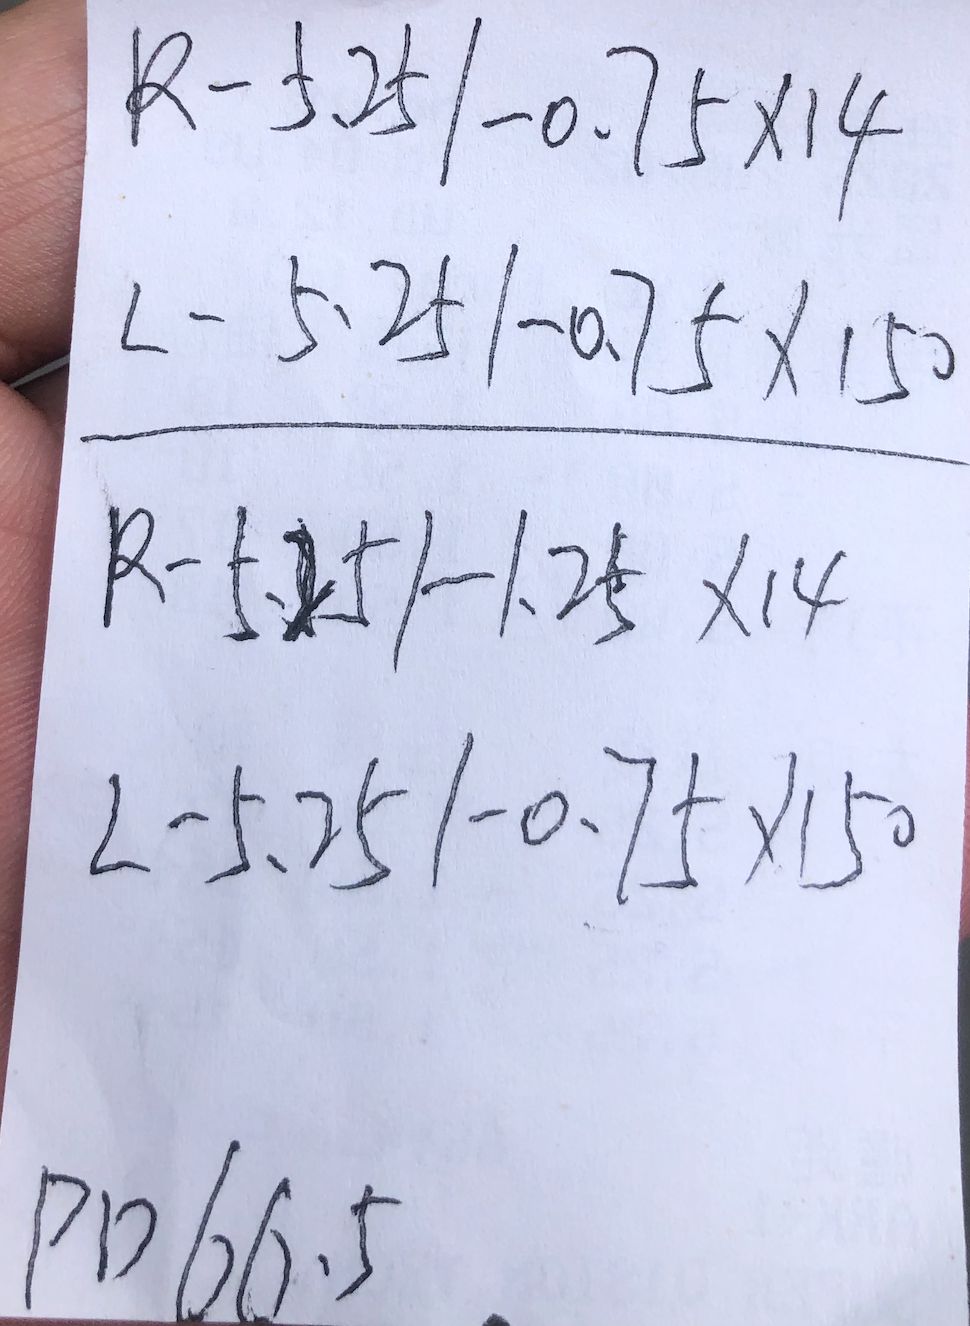 R-5.25/-0.75×14
L-5.25/-0.75×150
R-5.25/-1.25 ×14
L-5.25/-0.75×150
PD66.5